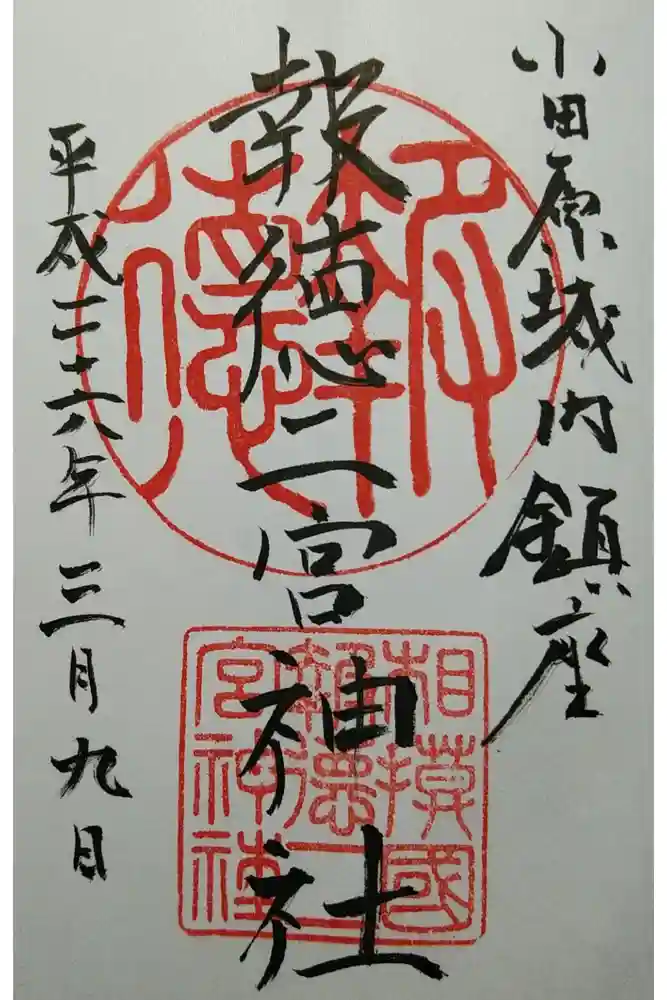 小田原城内鎮座
報徳二宮神社
平成二十六年三月九日
報徳
相模國
報徳二
宮神社